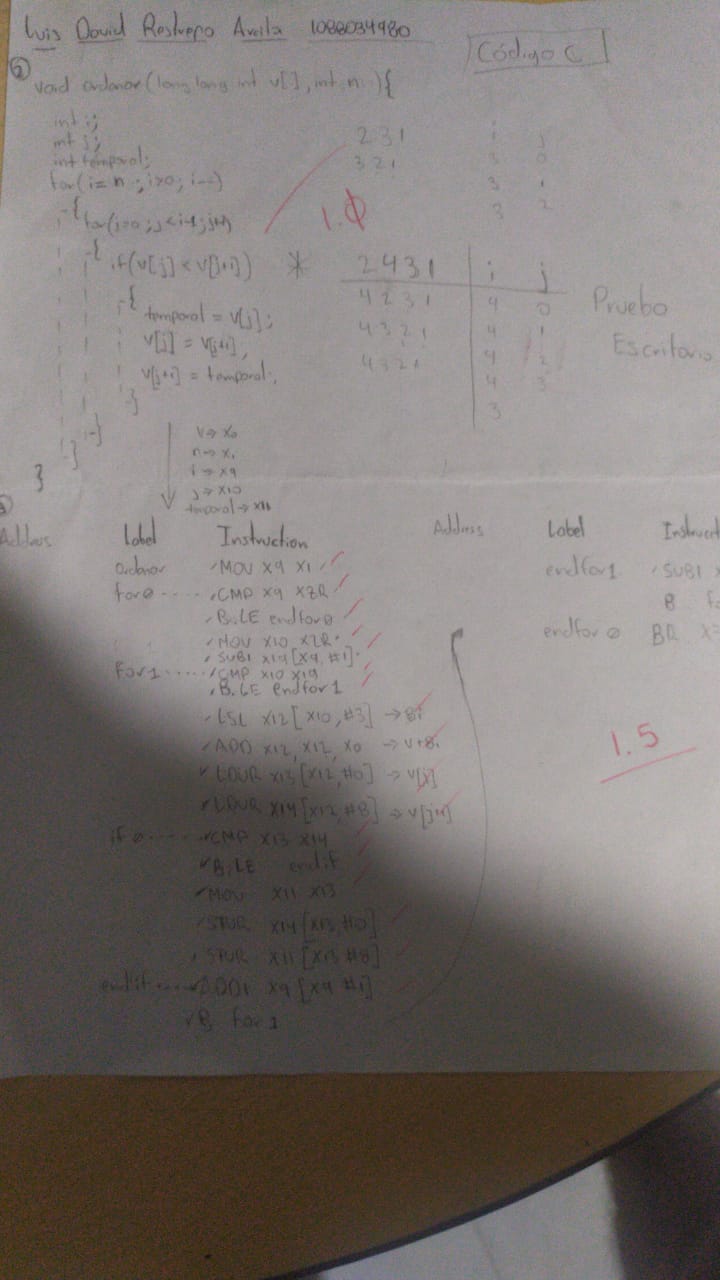 Luis David Restrepo Avila 1088034980
Código C
②
void ordenar(long long int v[], int n){
int i;
int j;
int temporal;
for(i=n ; i>0; i--)
{for(j=0;j<i-1;j++)
{ if(v[j] < v[j+1])
{
temporal = v[j];
v[j] = v[j+1],
v[j+1] = temporal;
}
}
}
}
2 3 1 i j
3 2 1 3 0
3 1
3 2
1.0
* 2 4 3 1 i j
4 2 3 1 4 0
4 3 2 1 4 1
4 3 2 1 4 2
4 3
3
Prueba
Escritorio
v→ x0
n→ x1
i → x9
j → x10
temporal → x11
Address Label Instruction
ordenar MOV X9 X1
for0 CMP X9 XZR
B.LE endfor0
MOV X10 XZR
SUBI X19[X9, #1]
for1 CMP X10 X19
B.GE endfor1
LSL X12[X10,#3] → 8i
ADD X12, X12, X0 → v+8i
LDUR X13[X12,#0] → v[j]
LDUR X14[X12,#8] → v[j+1]
if0 CMP X13 X14
B.LE endif
MOV X11 X13
STUR X14[X13,#0]
STUR X11[X13 #8]
endif ADDI X9[X9 #1]
B for1
Address Label Instruct
endfor1 SUBI
B
endfor0 BR
1.5